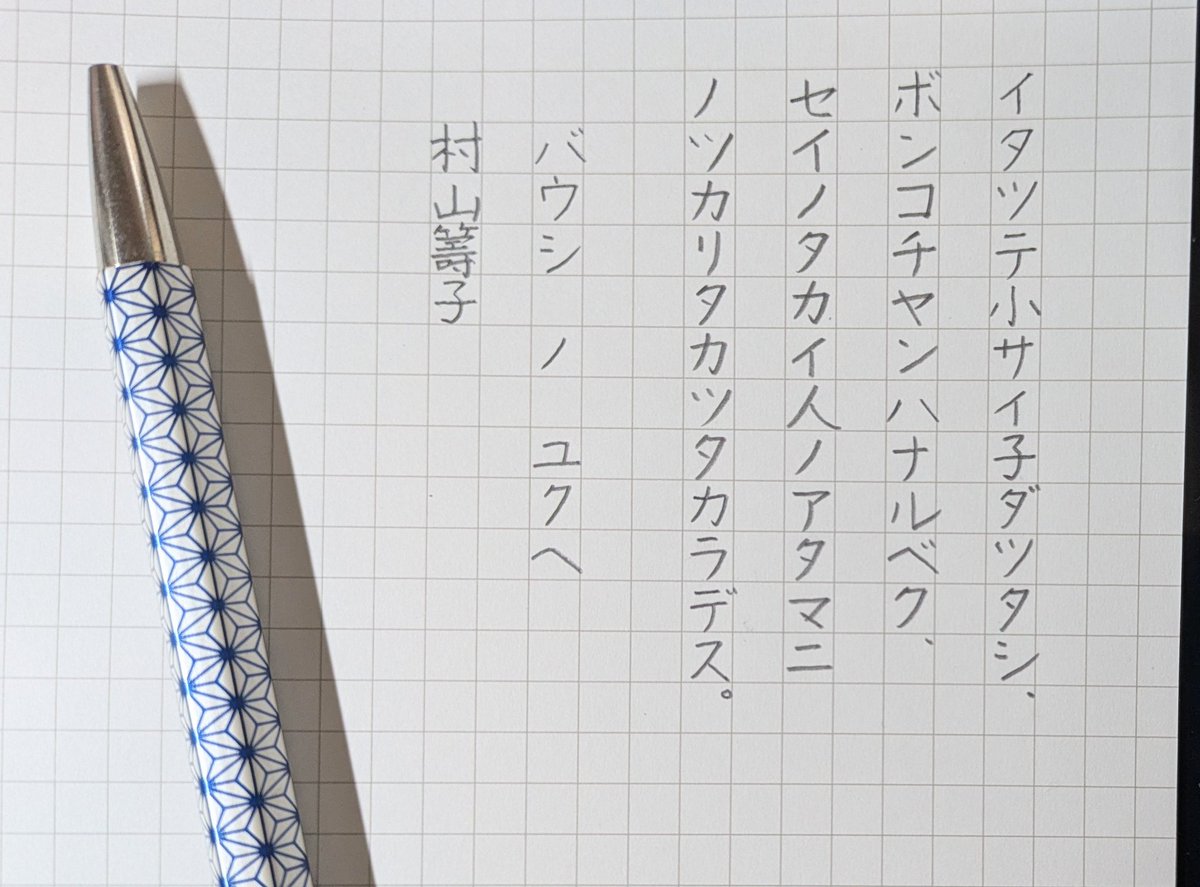 イタツテ小サイ子ダツタシ、
ボンコチヤンハナルベク、
セイノタカイ人ノアタマニ
ノツカリタカツタカラデス。
バウシ ノ ユクヘ
村山籌子